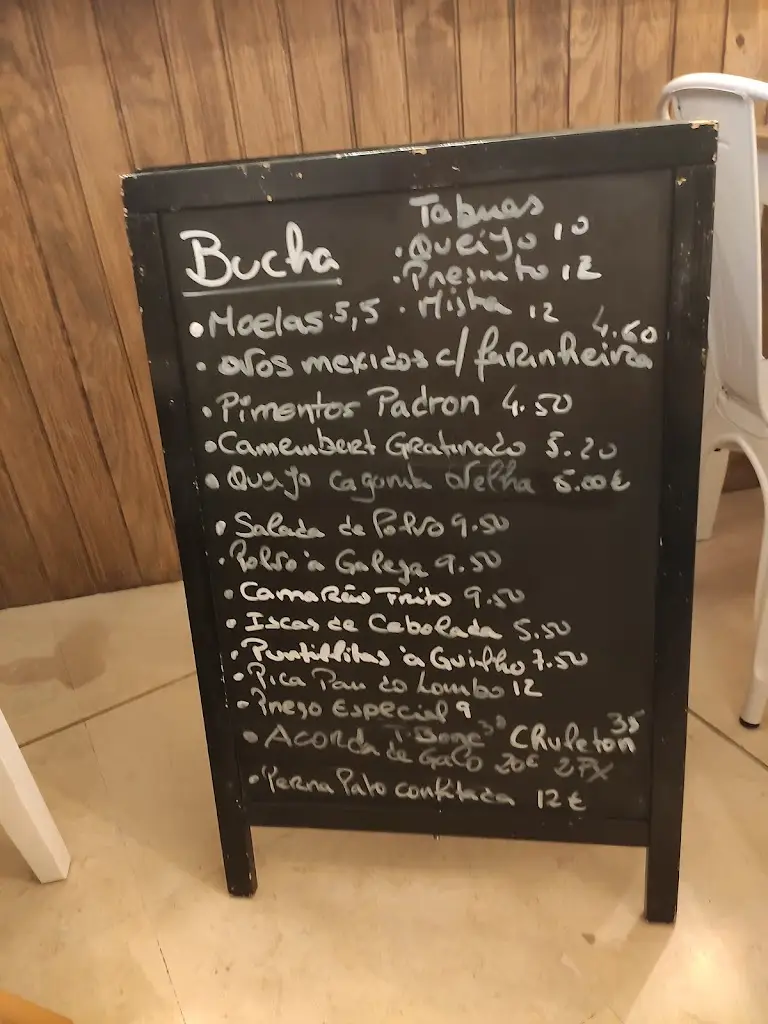 Bucha
Tabuas
. Queijo 10
. Presunto 12
. Mista 12
• Moelas 5,5
• ovos mexidos c/ farinheira 4.60
• Pimentos Padron 4.50
• Camembert Gratinado 5.20
• Queijo ovelha 5.00€
• Salada de Polvo 9.50
• Polvo à Galega 9.50
• Camarão Frito 9.50
• Iscas de Cebolada 5.50
• Puntillitas à Guilho 7.50
• Pica Pau do Lombo 12
• Prego Especial 9
T. Bone 38 Chuleton 35
• Acorda de Galo 20€
• Perna Pato confitada 12€